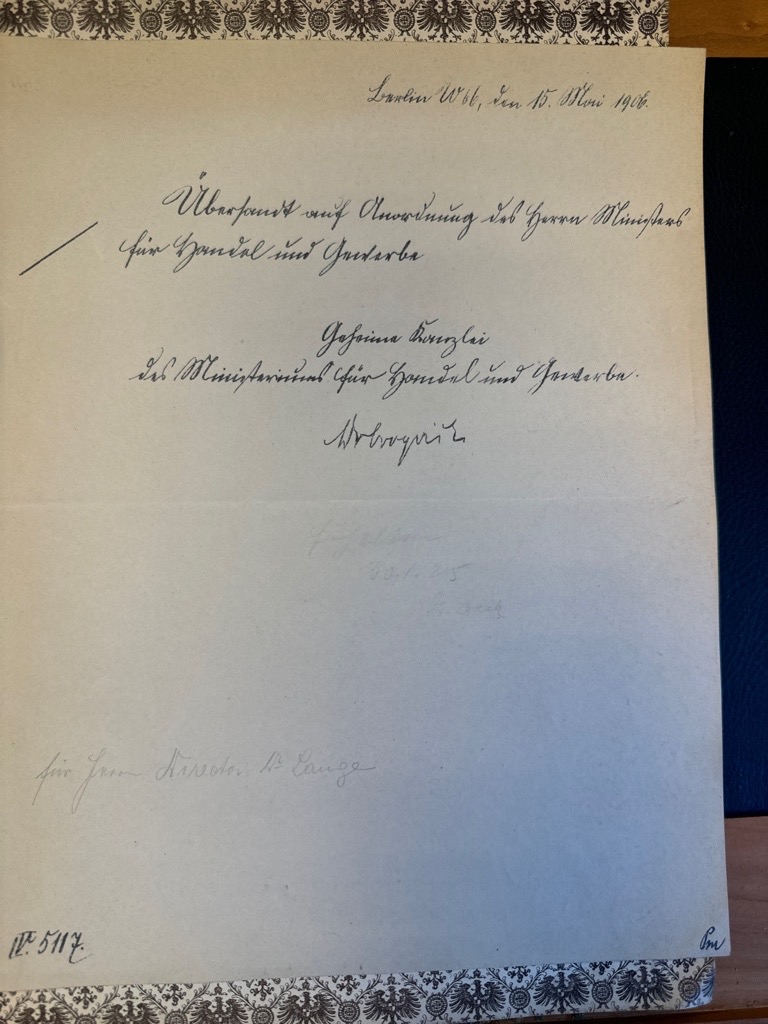 Berlin W 66, den 15. Mai 1906.
Übersandt auf Anordnung des Herrn Ministers
für Handel und Gewerbe
Geheime Kanzlei
des Ministeriums für Handel und Gewerbe.
für Herrn Director Dr Lange
IV. 5117.